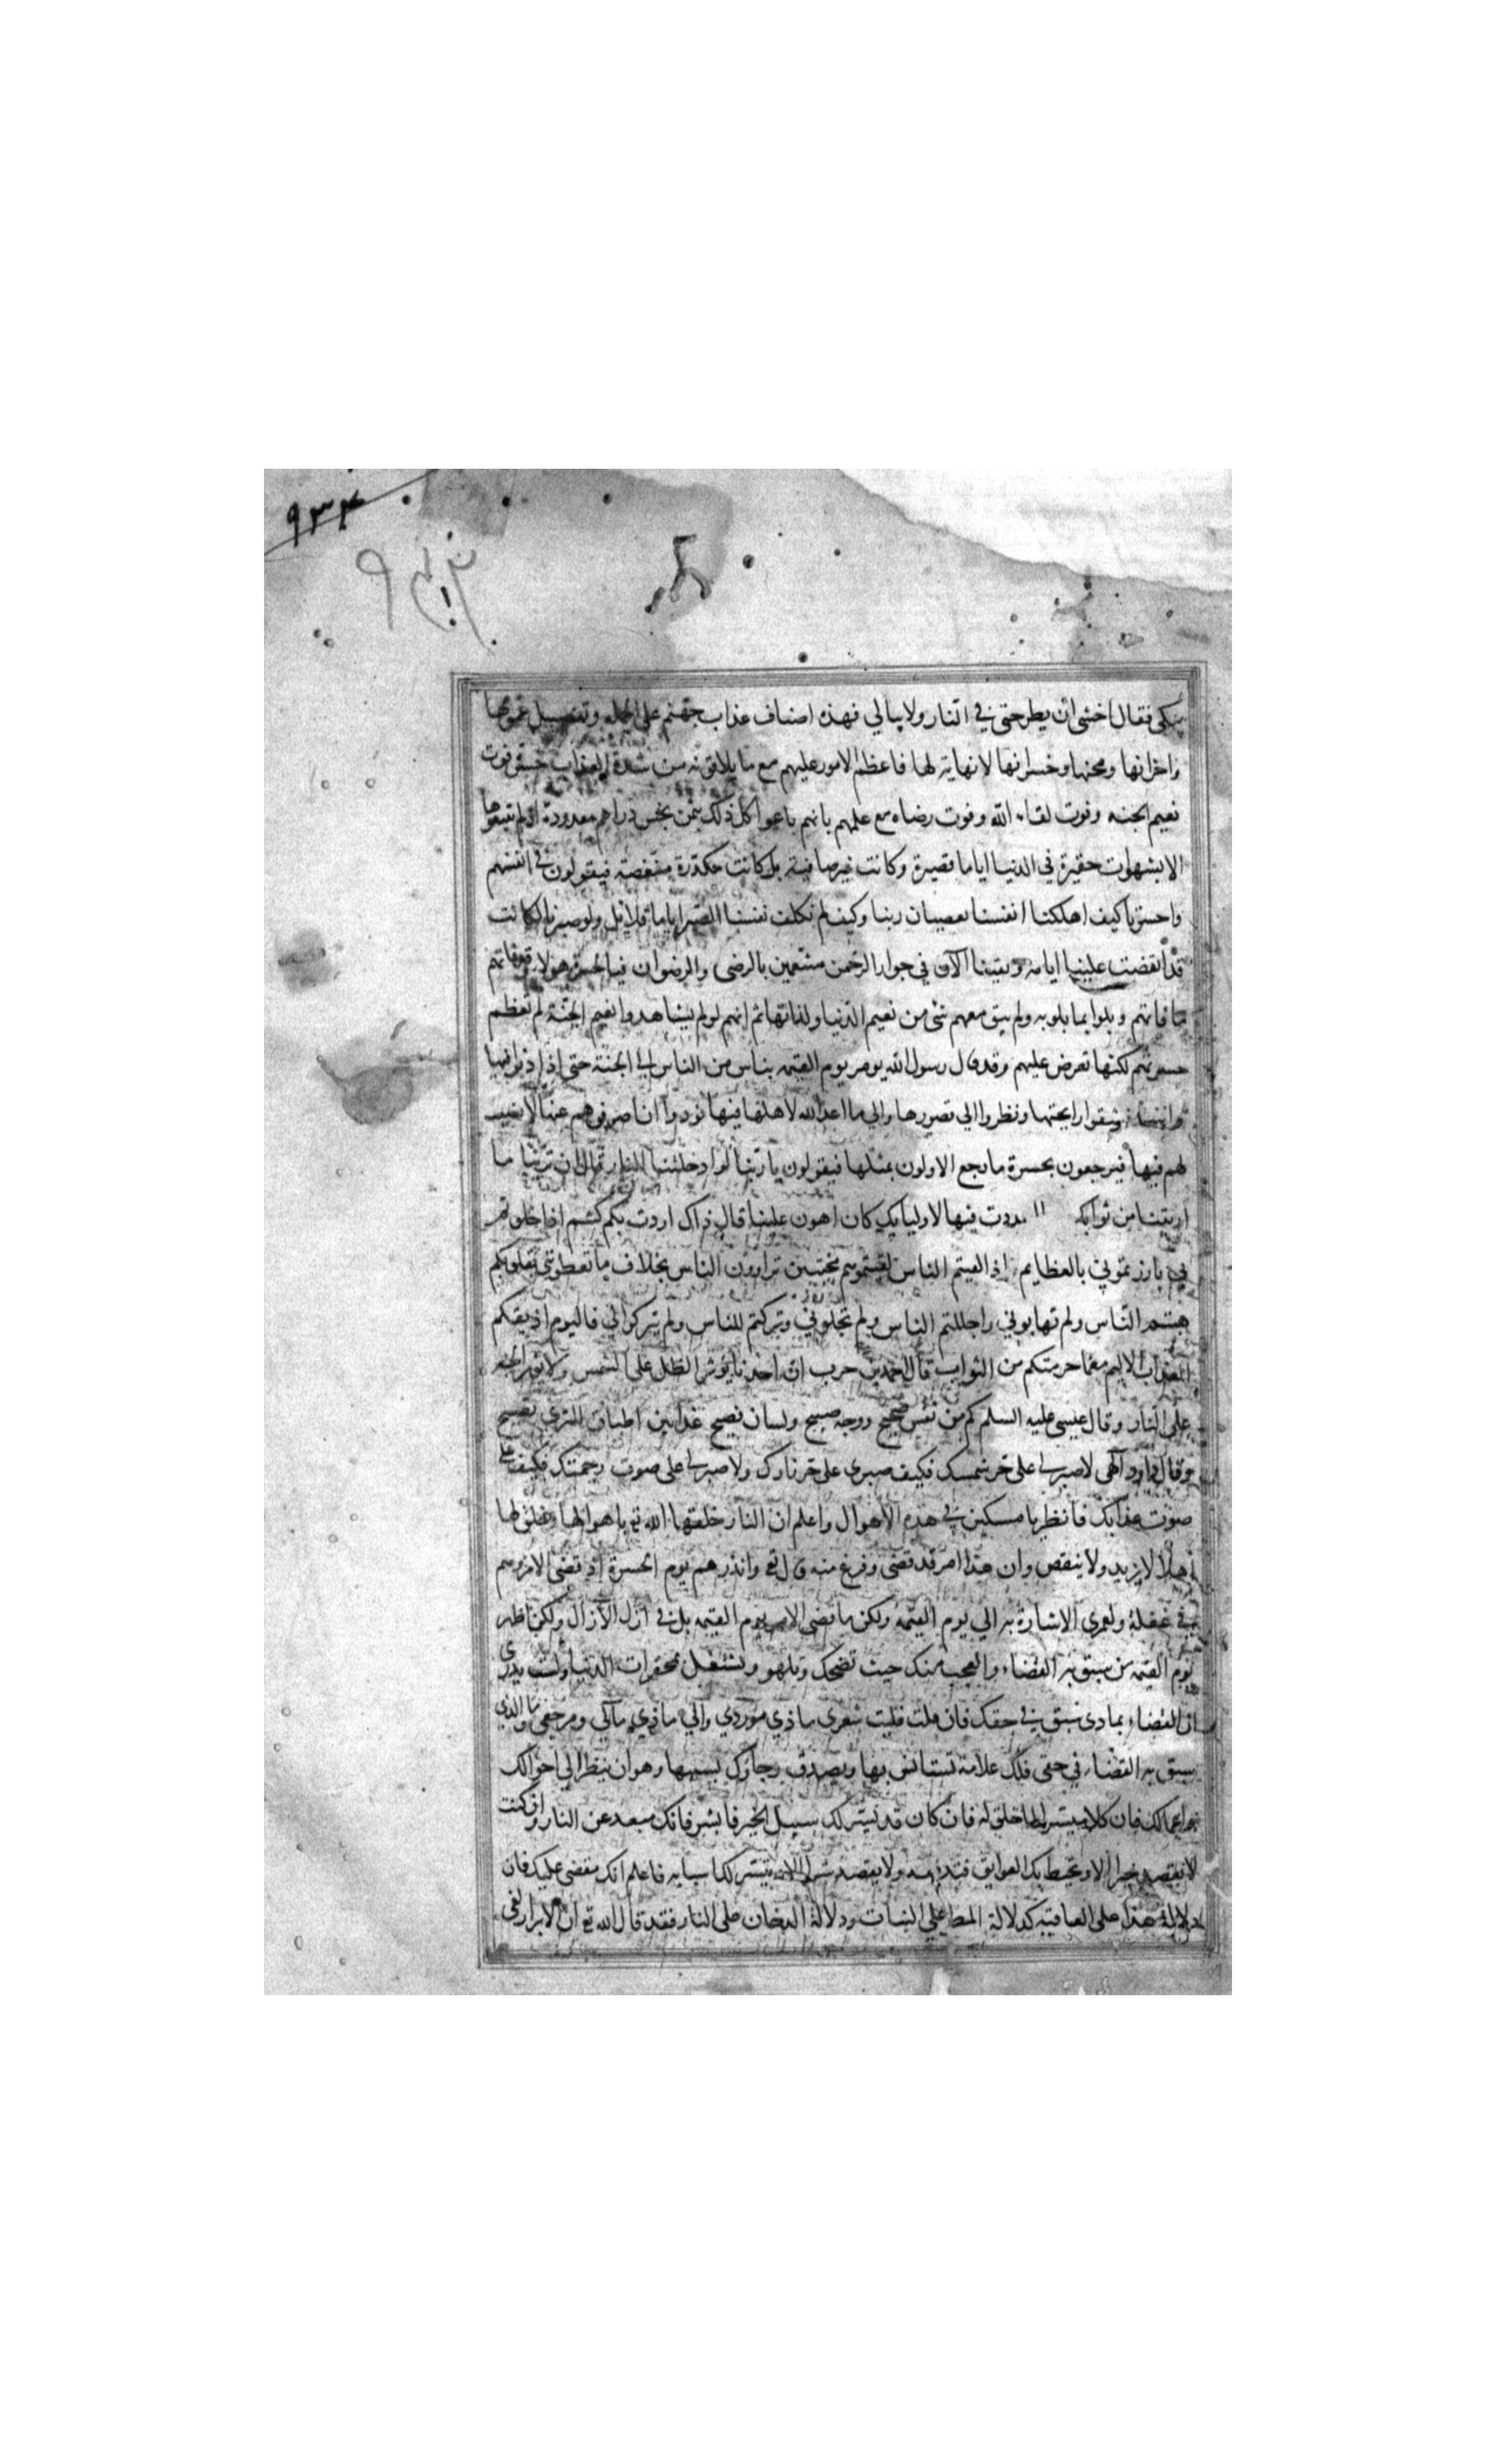 ٩٣٤
يبكي فقال اخشى ان يطرحني في النار ولا يبالي فهذه اصناف عذاب جهنم على الجمله وتفصيل غمومها
واحزانها ومحنها وخسرانها لا نهاية لها فاعظم الامور عليهم مع ما يلاقونه من شدة العذاب حسرة فوت
نعيم الجنه وفوت لقاء الله وفوت رضاه مع علمهم بانهم باعوا كل ذلك بثمن بخس دراهم معدودة اذ لم يبيعوها
الا بشهوات حقيرة في الدنيا اياما قصيرة وكانت غير صافية بل كانت مكدرة منغصة فيقولون في انفسهم
واحسرتا كيف اهلكنا انفسنا بعصيان ربنا وكيف لم نكلف نفسنا الصبر اياما قلايل ولو صبرنا لكانت
قد انقضت علينا ايامه وبقينا الآن في جوار الرحمن متنعمين بالرضى والرضوان فيالحسرة هولاء وقد فاتهم
ما فاتهم وبلوا بما بلو به ولم يبق معهم شئ من نعيم الدنيا ولذاتها ثم انهم لو لم يشاهدوا نعيم الجنة لم تعظم
حسرتهم لكنها تعرض عليهم وقد قال رسول الله يومر يوم القيمه بناس من الناس الى الجنة حتى اذا دنوا منها
واستنشقوا رايحتها ونظروا الي قصورها والي ما اعد الله لاهلها فيها نودوا ان اصرفوهم عنها لا نصيب
لهم فيها فيرجعون بحسرة ما رجع الاولون بمثلها فيقولون يا ربنا لو ادخلتنا النار قبل ان ترينا ما
اريتنا من ثوابك اعددت فيها لاوليايك كان اهون علينا قال ذاك اردت بكم كنتم اذا خلوتم
بي بارزتموني بالعظايم اذا لقيتم الناس لقيتموهم مخبتين تراوون الناس بخلاف ما تعطوني بقلوبكم
هبتم الناس ولم تهابوني واجللتم الناس ولم تجلوني وتركتم للناس ولم تتركوا لي فاليوم اذيقكم
العذاب الاليم مع ما حرمتكم من الثواب قال احمد بن حرب ان احدنا يؤثر الظل على الشمس ولا يؤثر الجنه
على النار وقال عيسى عليه السلم كم من نفس صحيح ووجه صبيح ولسان فصيح غدا بين اطباق النري يصيح
وقال داود الهى لا صبر لي على حر شمسك فكيف صبرى على حر نارك ولا صبر لي على صوت رحمتك فكيف على
صوت عذابك فانظر يا مسكين في هذه الاهوال واعلم ان النار خلقها الله تع باهوالها وخلق لها
اهلا لا يزيد ولا ينقص وان هذا امر قد قضى وفرغ منه قال تع وانذرهم يوم الحسرة اذ قضى الامر وهم
في غفلة ولعمري الاشارة به الي يوم القيمه ولكن ما قضى الامر يوم القيمه بل في ازل الآزال ولكن اظهر
يوم القيمه من سبق به القضاء والعجب منك حيث تضحك وتلهو وتشتغل بمحقرات الدنيا ولست تدرى
ان القضاء بماذى سبق في حقك فان قلت فليت شعرى ماذي موردي والي ماذي مآلي ومرجعي وما الذي
سبق به القضاء في حقى فلك علامة تستانس بها وتصدق رجاؤك بسببها وهو ان ينظر الي احوالك
واعمالك فان كلا ميسر لما خلق له فان كان قد تيسر لك سبيل الخير فابشر فانك مبعد عن النار وان كنت
لا تقصد خيرا الا وتحيط بك العوايق فتدفعه ولا يقصد شرا الا تيسر لك اسبابه فاعلم انك مقضى عليك فان
دلالة هذا على العاقبة كدلالة المطر على النبات ودلالة الدخان على النار فقد قال الله تع ان الابرار لفى